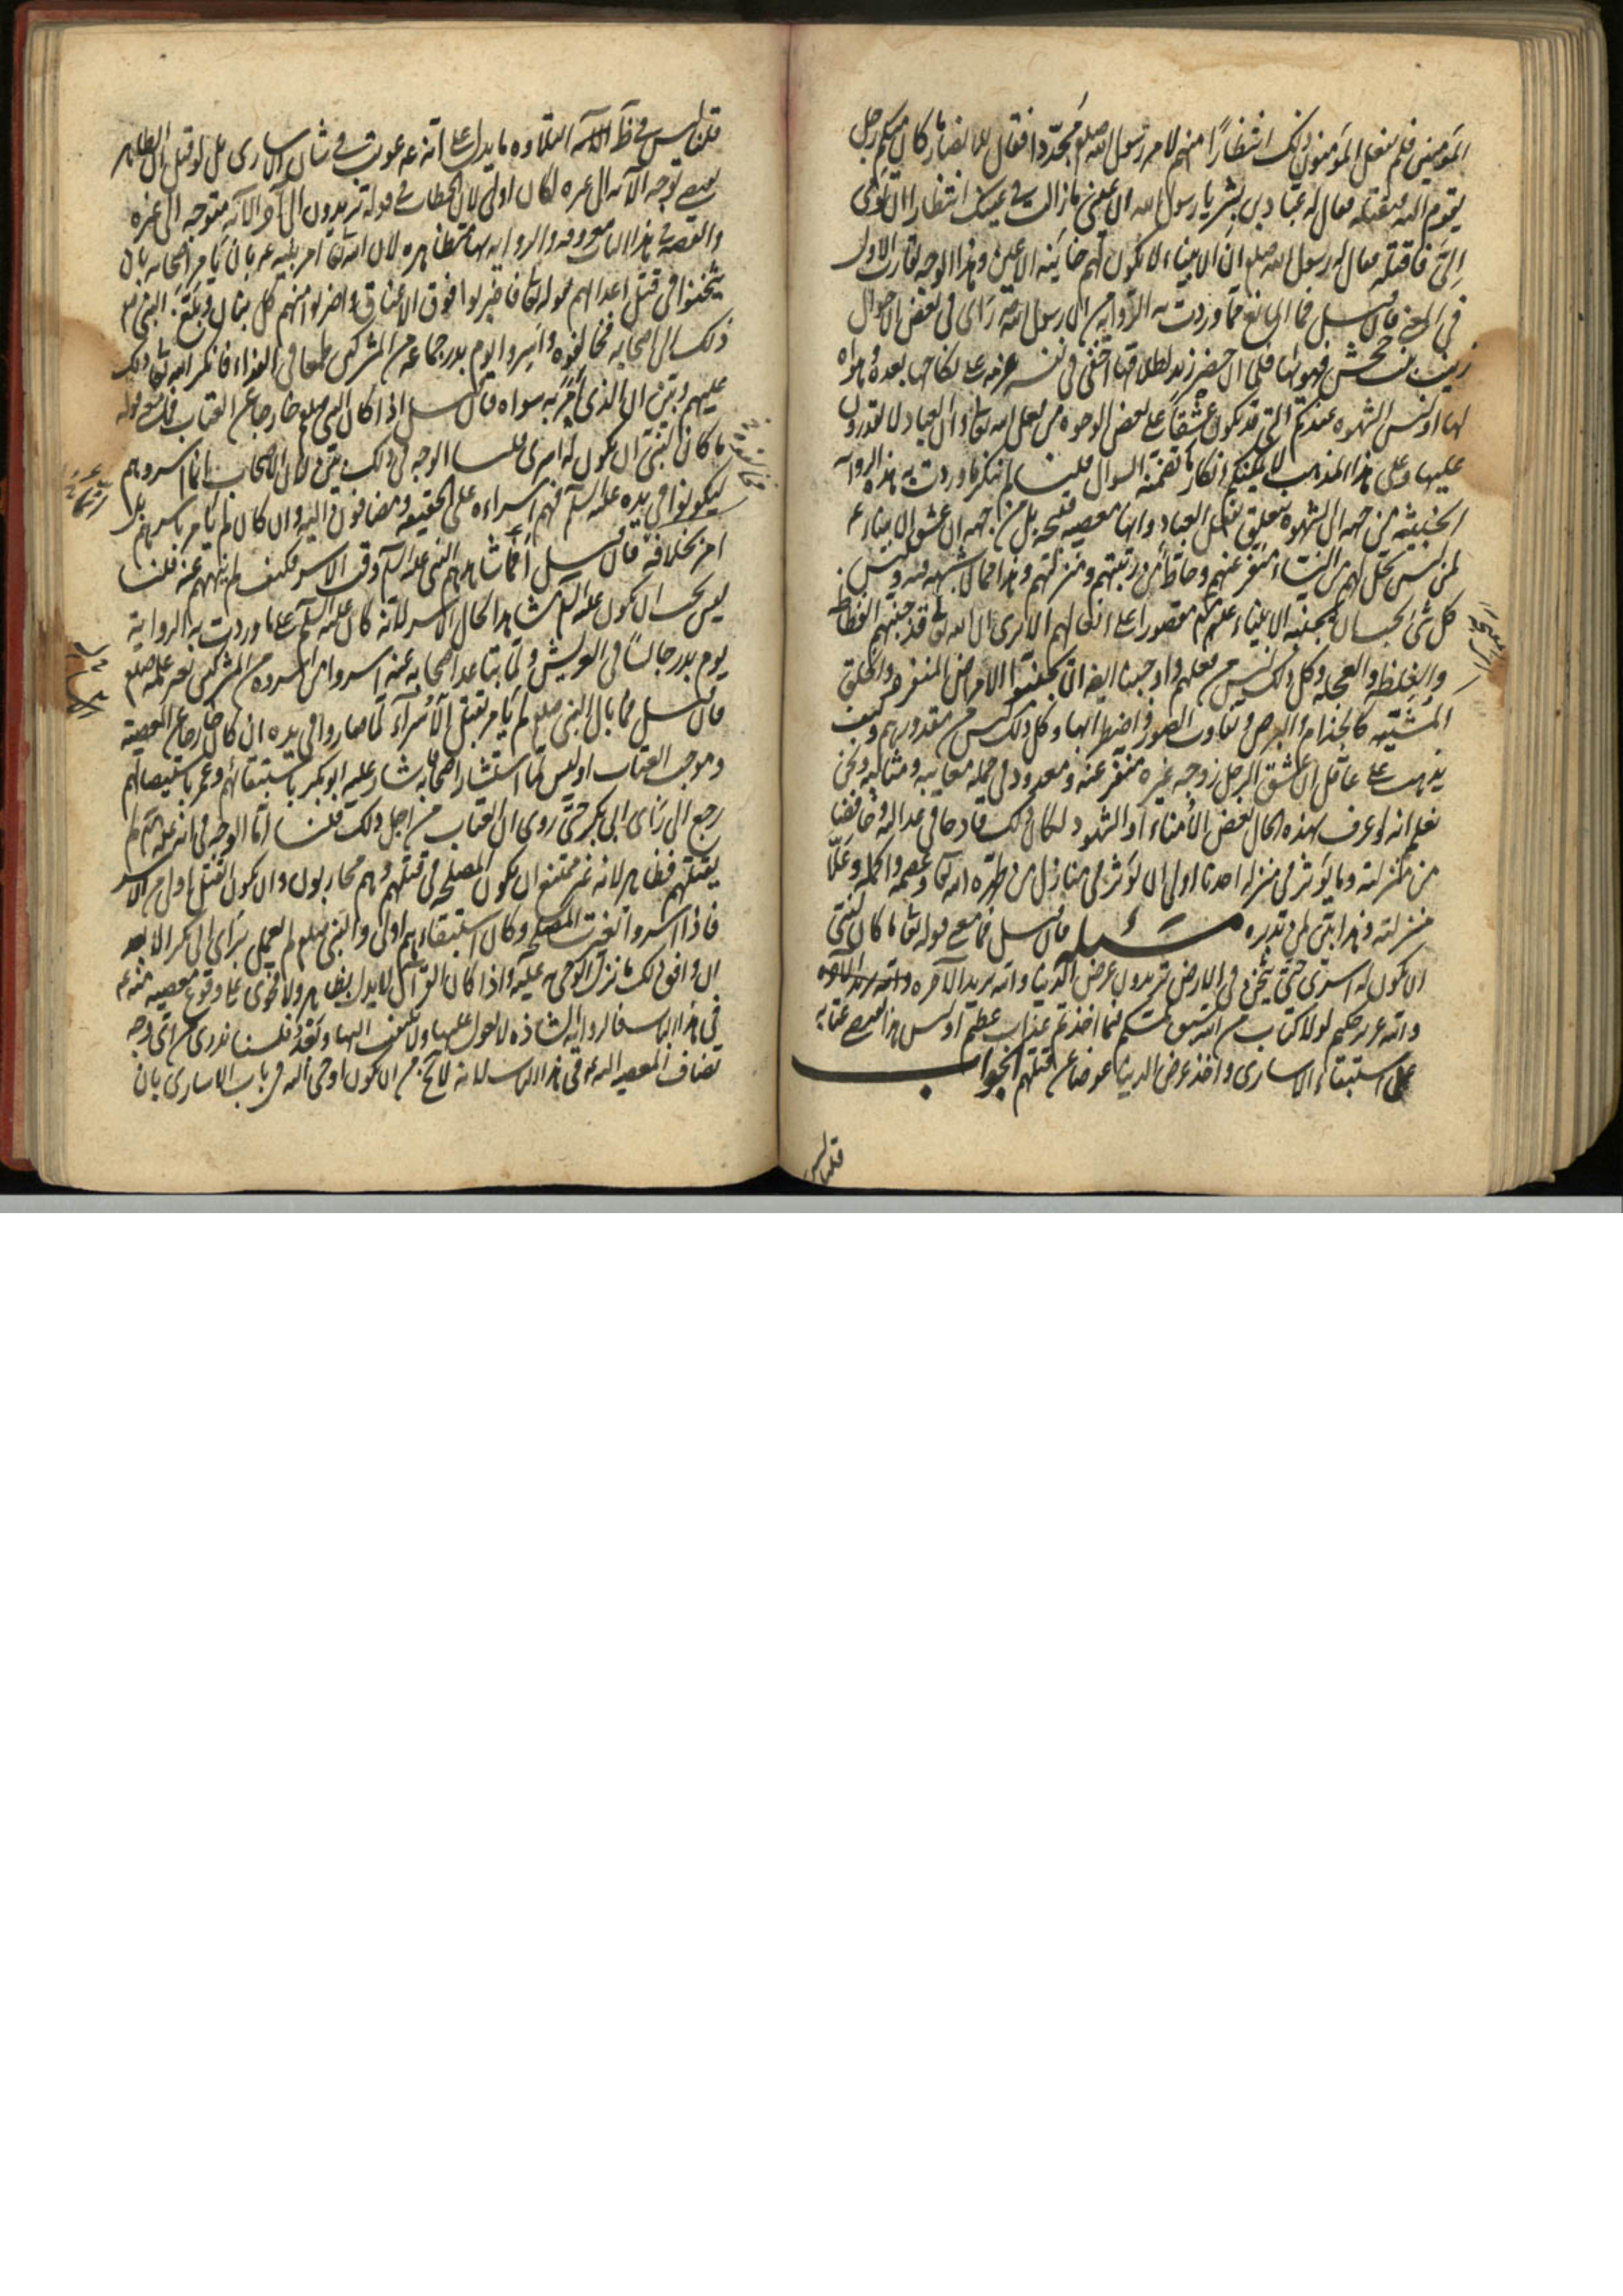 المؤمنين فلم يفعل المؤمنون ذلك انتظارًا منهم لامر رسول الله صلعم مجددا فقال للانصار ما كان منكم رجل
يقوم اليه فيقتله فقال له عباد بن بشر يا رسول الله ان عيني ما زالت في عينك انتظارا ان تومى
الىّ فاقتله فقال له رسول الله صلعم ان الانبياء لا يكون لهم خاينة الاعين وهذا الوجه يقارب الاول
في المعنى فان قيل فما المانع مما وردت به الرواية من ان رسول الله صلعم رأى في بعض الاحوال
زينب بنت جحش فهويها فلما ان حضر زيد لطلاقها اخفى في نفسه عزمه على نكاحها بعده وهواه
لها او ليس الشهوة عندكم التي قد تكون عشقا على بعض الوجوه من فعل الله تعالى وان العباد لا يقدرون
عليها وعلى هذا المذهب لا يمكنكم انكار ما تضمنه السوال قلنا لم ننكر ما وردت به هذه الرواية
الخبيثة من جهة ان الشهوة تتعلق بفعل العباد وانها معصية قبيحة بل من جهة ان عشق الانبياء ع
لمن ليس يحل لهم من النساء منفر عنهم وحاط من رتبتهم ومنزلتهم وهذا مما لا شبهة فيه وليس
كل شئ يجب ان يجتنبه الانبياء عليهم مقصورا على افعالهم الا ترى ان الله تعالى قد جنبهم الفظاظة
والغلظة والعجلة وكل ذلك ليس من فعلهم واوجبنا ايضا ان يجتنبوا الامراض المنفرة والخلق
المشينة كالجذام والبرص وتفاوت الصور واضطرابها وكل ذلك ليس من مقدورهم وكيف
يذهب على عاقل ان عشق الرجل زوجة غيره منفر عنه ومعدود في جملة معايبه ومثالبه ونحن
نعلم انه لو عرف بهذه الحال بعض الامناء او الشهود لكان ذلك قادحا في عدالته وخافضا
من منزلته وما يؤثر في منزلة احدنا اولى ان يؤثر في منازل من طهره الله تعالى وعصمه واكمله وعلا
منزلته وهذا بين لمن تدبره مسئلة فان قيل فما معنى قوله تعالى ما كان لنبي
ان يكون له اسرى حتى يثخن في الارض تريدون عرض الدنيا والله يريد الآخرة
والله عزيز حكيم لولا كتاب من الله سبق لمسكم فيما اخذتم عذاب عظيم او ليس هذا يقتضي عتابه
على استبقاء الاسارى واخذ عرض الدنيا عوضا عن قتلهم الجواب
قلنا ليس
قلنا ليس في ظاهر الآية المتلوة ما يدل على انه عه عوتب في شان الاسارى بل لو قيل ان الظاهر
يقتضي توجه الآية الى غيره لكان اولى لان الخطاب في قوله تريدون الى آخر الآية متوجه الى غيره
والقصة في هذا الباب معروفة والرواية بها متظاهرة لان الله تعالى امر نبيه عه بان يامر اصحابه بان
يثخنوا في قتل اعدائهم بقوله تعالى فاضربوا فوق الاعناق واضربوا منهم كل بنان وبلغ النبي ص
ذلك الى اصحابه فخالفوه واسروا يوم بدر جماعة من المشركين طمعا في الفداء فانكر الله تعالى ذلك
عليهم وبين ان الذي امر به سواه فان قيل اذا كان النبي صلعم خارجا عن العتاب فما معنى قوله
ما كان لنبي ان يكون له اسرى قلنا الوجه في ذلك بيّن لان الاصحاب انما اسروهم
ليكونوا في يده عليه السلم فهم اسراءه على الحقيقة ومضافون اليه وان كان لم يامر باسرهم بل
امر بخلافه فان قيل أفما شاهدهم النبي عليه السلم وقت الاسر فكيف لم ينههم عنه قلنا
ليس يجب ان يكون عليه السلم مشاهدا لحال الاسر لانه كان عليه السلم على ما وردت به الرواية
يوم بدر جالسا في العريش ولما تباعد اصحابه عنه اسروا من اسروه من المشركين بغير علمه صلعم
فان قيل فما بال النبي صلعم لم يامر بقتل الأسراء لما صاروا في يده ان كان خارجا عن المعصية
وموجب العتاب اوليس لما استشار اصحابه فاشار عليه ابو بكر باستبقائهم وعمر باستيصالهم
رجع الى رأى ابى بكر حتى روى ان العتاب من اجل ذلك قلنا اما الوجه في انه عليه السلم لم
يقتلهم فظاهر لانه غير ممتنع ان يكون المصلحة في قتلهم وهم محاربون وان يكون القتل اولى من الاسر
فاذا اسروا تغيرت المصلحة وكان استبقاءهم اولى والنبي صلعم لم يعمل برأى ابى بكر الا بعد
ان وافق ذلك ما نزل به الوحى عليه واذا كان القرآن لا يدل بظاهر ولا فحوى على وقوع معصية منه عه
في هذا الباب فالرواية الشاذة لا يعول عليها ولا يلتفت اليها وبعد فلسنا ندرى من اى وجه
تضاف المعصية اليه ع في هذا الباب لانه لا يخلو من ان يكون اوحى اليه في باب الاسارى بان